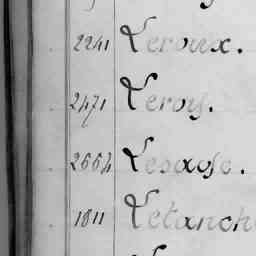 2241 Leroux.
2471 Leroy.
2664 Lesage.
1811 Letanch